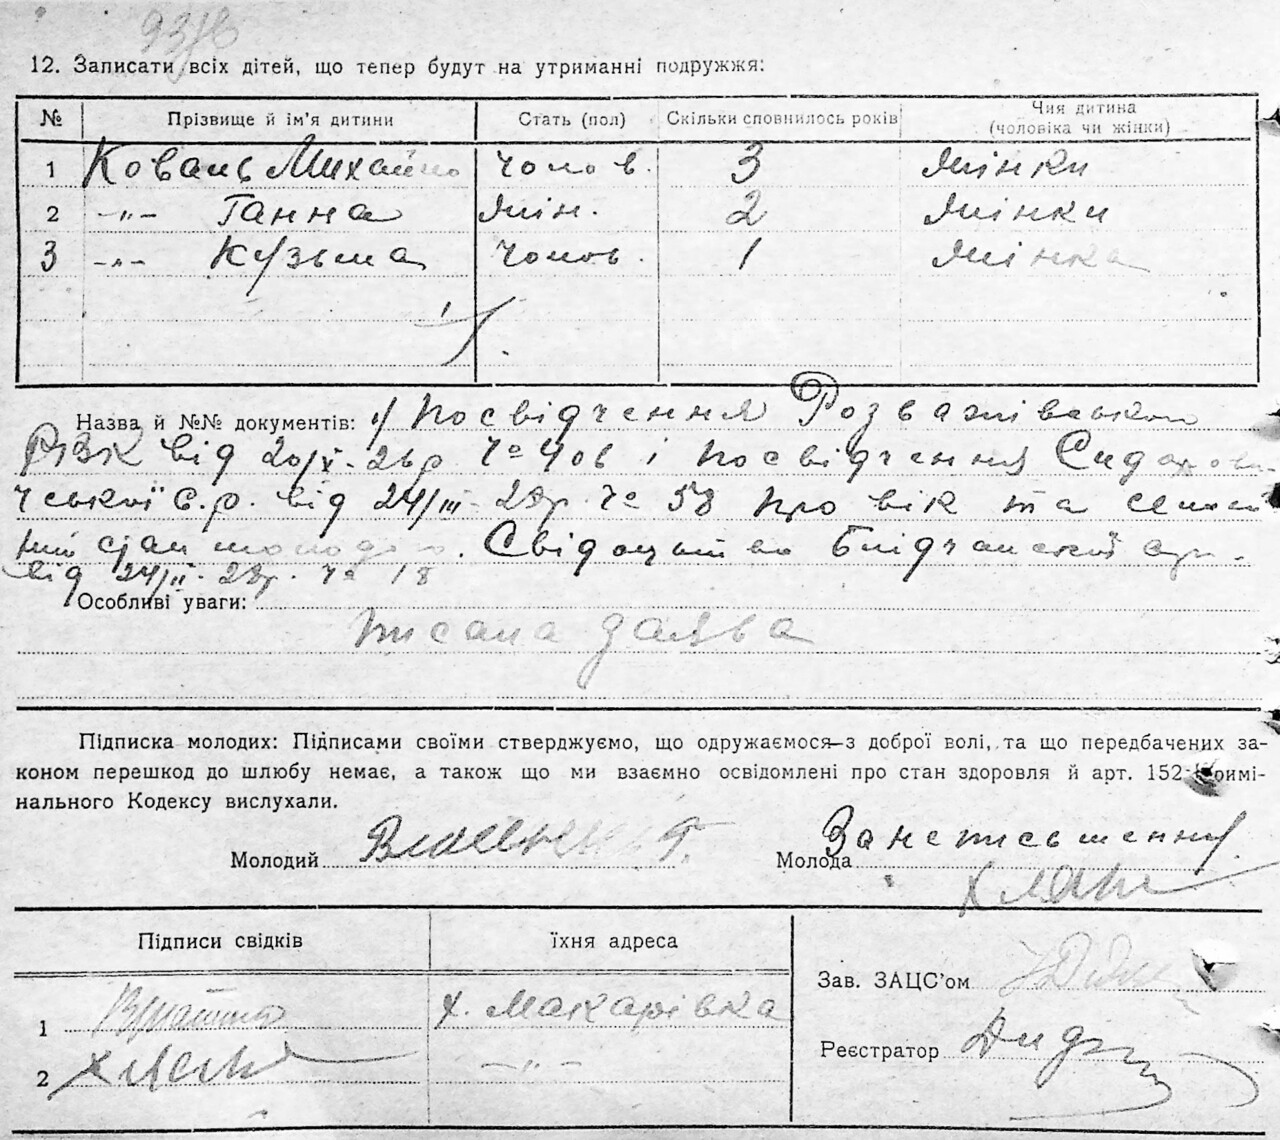 12. Записати всіх дітей, що тепер будут на утриманні подружжя:
№ Прізвище й ім'я дитини Стать (пол) Скільки сповнилось років Чия дитина (чоловіка чи жінки)
1 Коваль Михайло чолов. 3 жінки
2 -"- Ганна жін. 2 жінки
3 -"- Кузьма чолов. 1 жінка
Назва й №№ документів: 1/ Посвідчення Розважівського
РВК від 20/X-26р. Ч° 406 і посвідчення Сидорови-
чської С.р. від 24/III-28р. Ч° 58 про вік та семей
ний стан молодого. Свідоцтво Блідчанської с.р.
від 24/II-28р. Ч° 18
Особливі уваги:
писала заява
Підписка молодих: Підписами своїми стверджуємо, що одружаємося з доброї волі, та що передбачених за-
коном перешкод до шлюбу немає, а також що ми взаємно освідомлені про стан здоровля й арт. 152 Кримі-
нального Кодексу вислухали.
Молодий
Молода За неписьменну
Підписи свідків їхня адреса
Зав. ЗАЦС'ом
1 х. Макарівка
Реєстратор
2 -"-